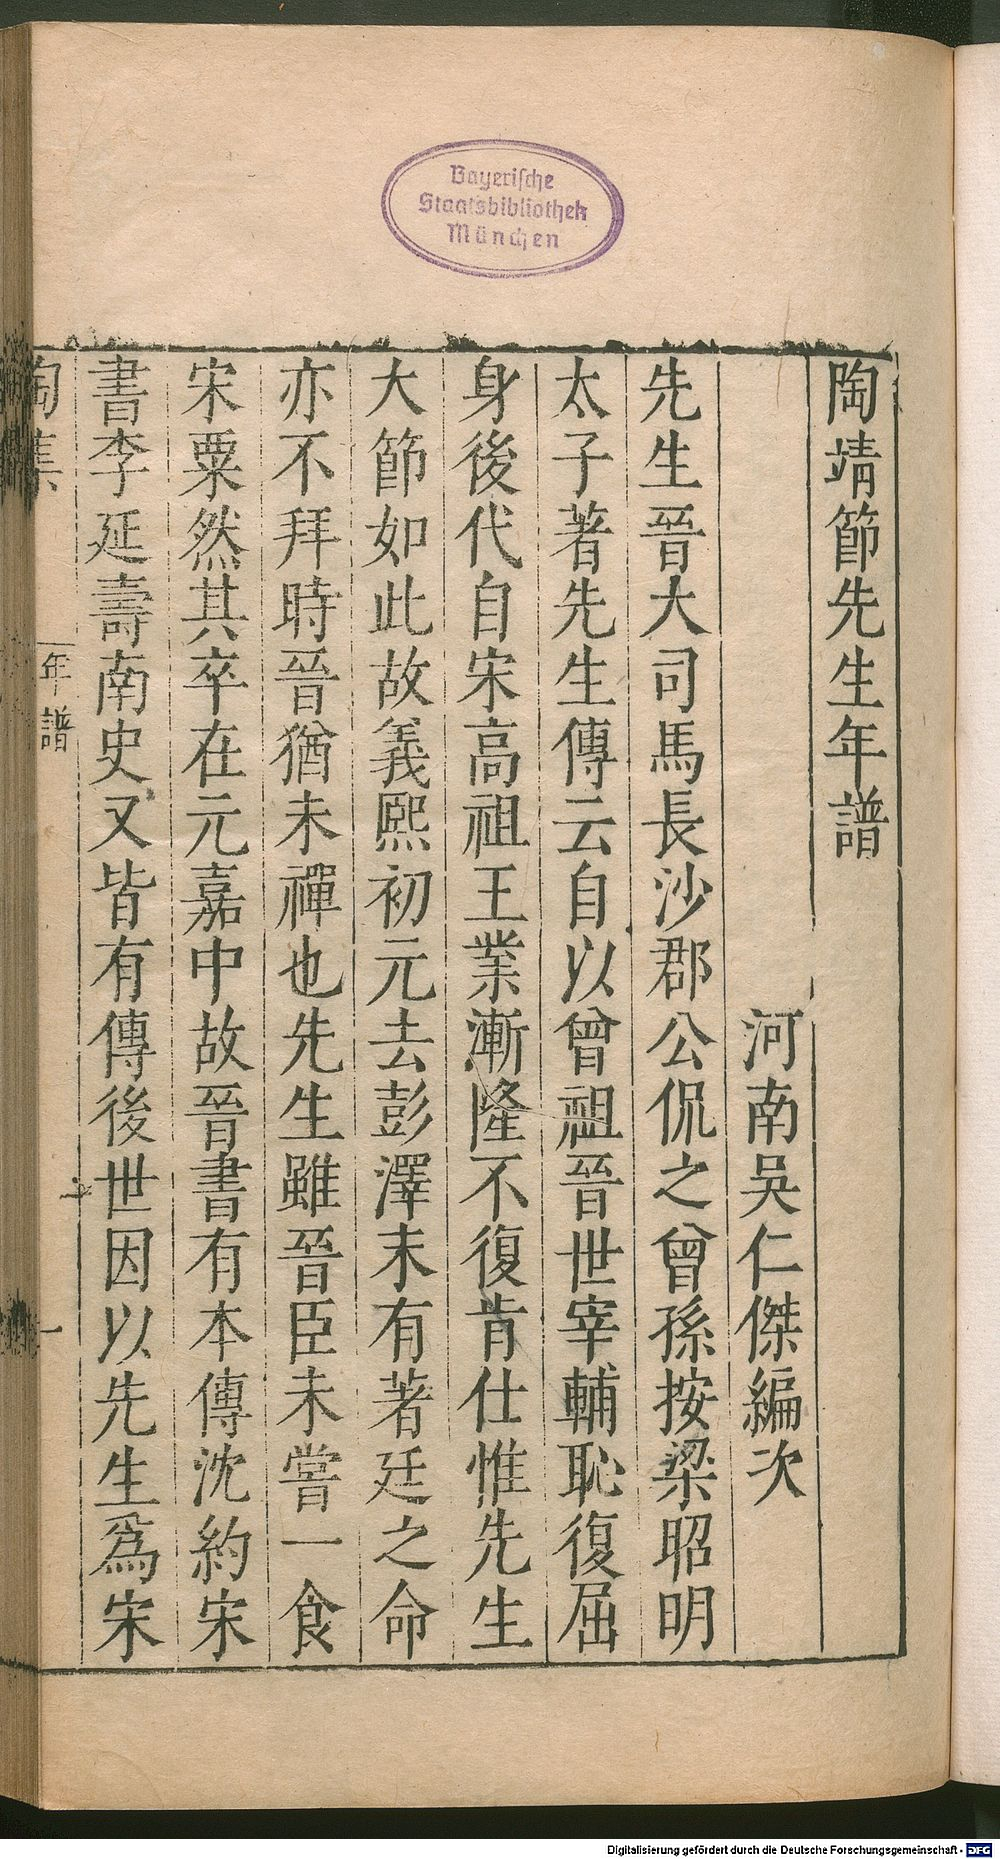 Bayerische
Staatsbibliothek
München
陶靖節先生年譜
河南吳仁傑編次
先生晉大司馬長沙郡公侃之曾孫按梁昭明
太子著先生傳云自以曾祖晉世宰輔恥復屈
身後代自宋高祖王業漸隆不復肯仕惟先生
大節如此故義熙初元去彭澤末有著廷之命
亦不拜時晉猶未禪也先生雖晉臣未嘗一食
宋粟然其卒在元嘉中故晉書有本傳沈約宋
書李延壽南史又皆有傳後世因以先生爲宋
陶集
年譜
一
Digitalisierung gefördert durch die Deutsche Forschungsgemeinschaft - DFG